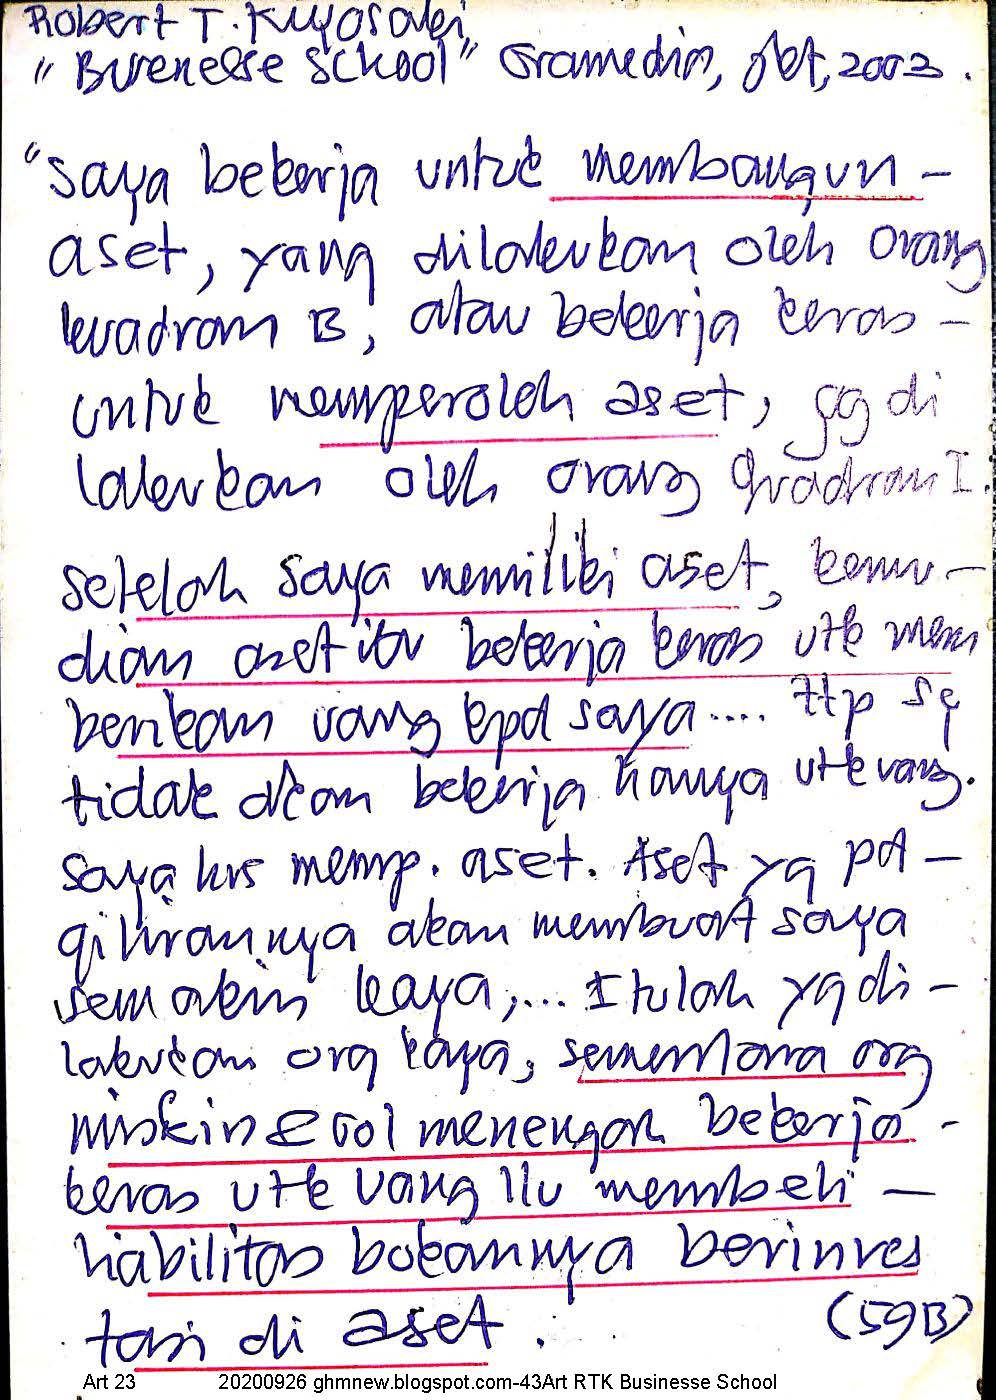 Robert T. Kiyosaki
"Businesse School" Gramedia, Jkt, 2003.
"Saya bekerja untuk membangun -
aset, yang dilakukan oleh orang
kuadran B, atau bekerja keras -
untuk memperoleh aset, yg di
lakukan oleh orang Quadran I.
setelah saya memiliki aset, kemu -
dian aset itu bekerja keras utk mem
berikan uang kpd saya .... ttp sy
tidak akan bekerja hanya utk uang.
saya hrs memp. aset. Aset yg pd -
gilirannya akan membuat saya
semakin kaya,... Itulah yg di -
lakukan org kaya, sementara org
miskin & gol menengah bekerja -
keras utk uang llu membeli -
liabilitas bukannya berinves
tasi di aset.
(59B)
Art 23 20200926 ghmnew.blogspot.com-43Art RTK Businesse School